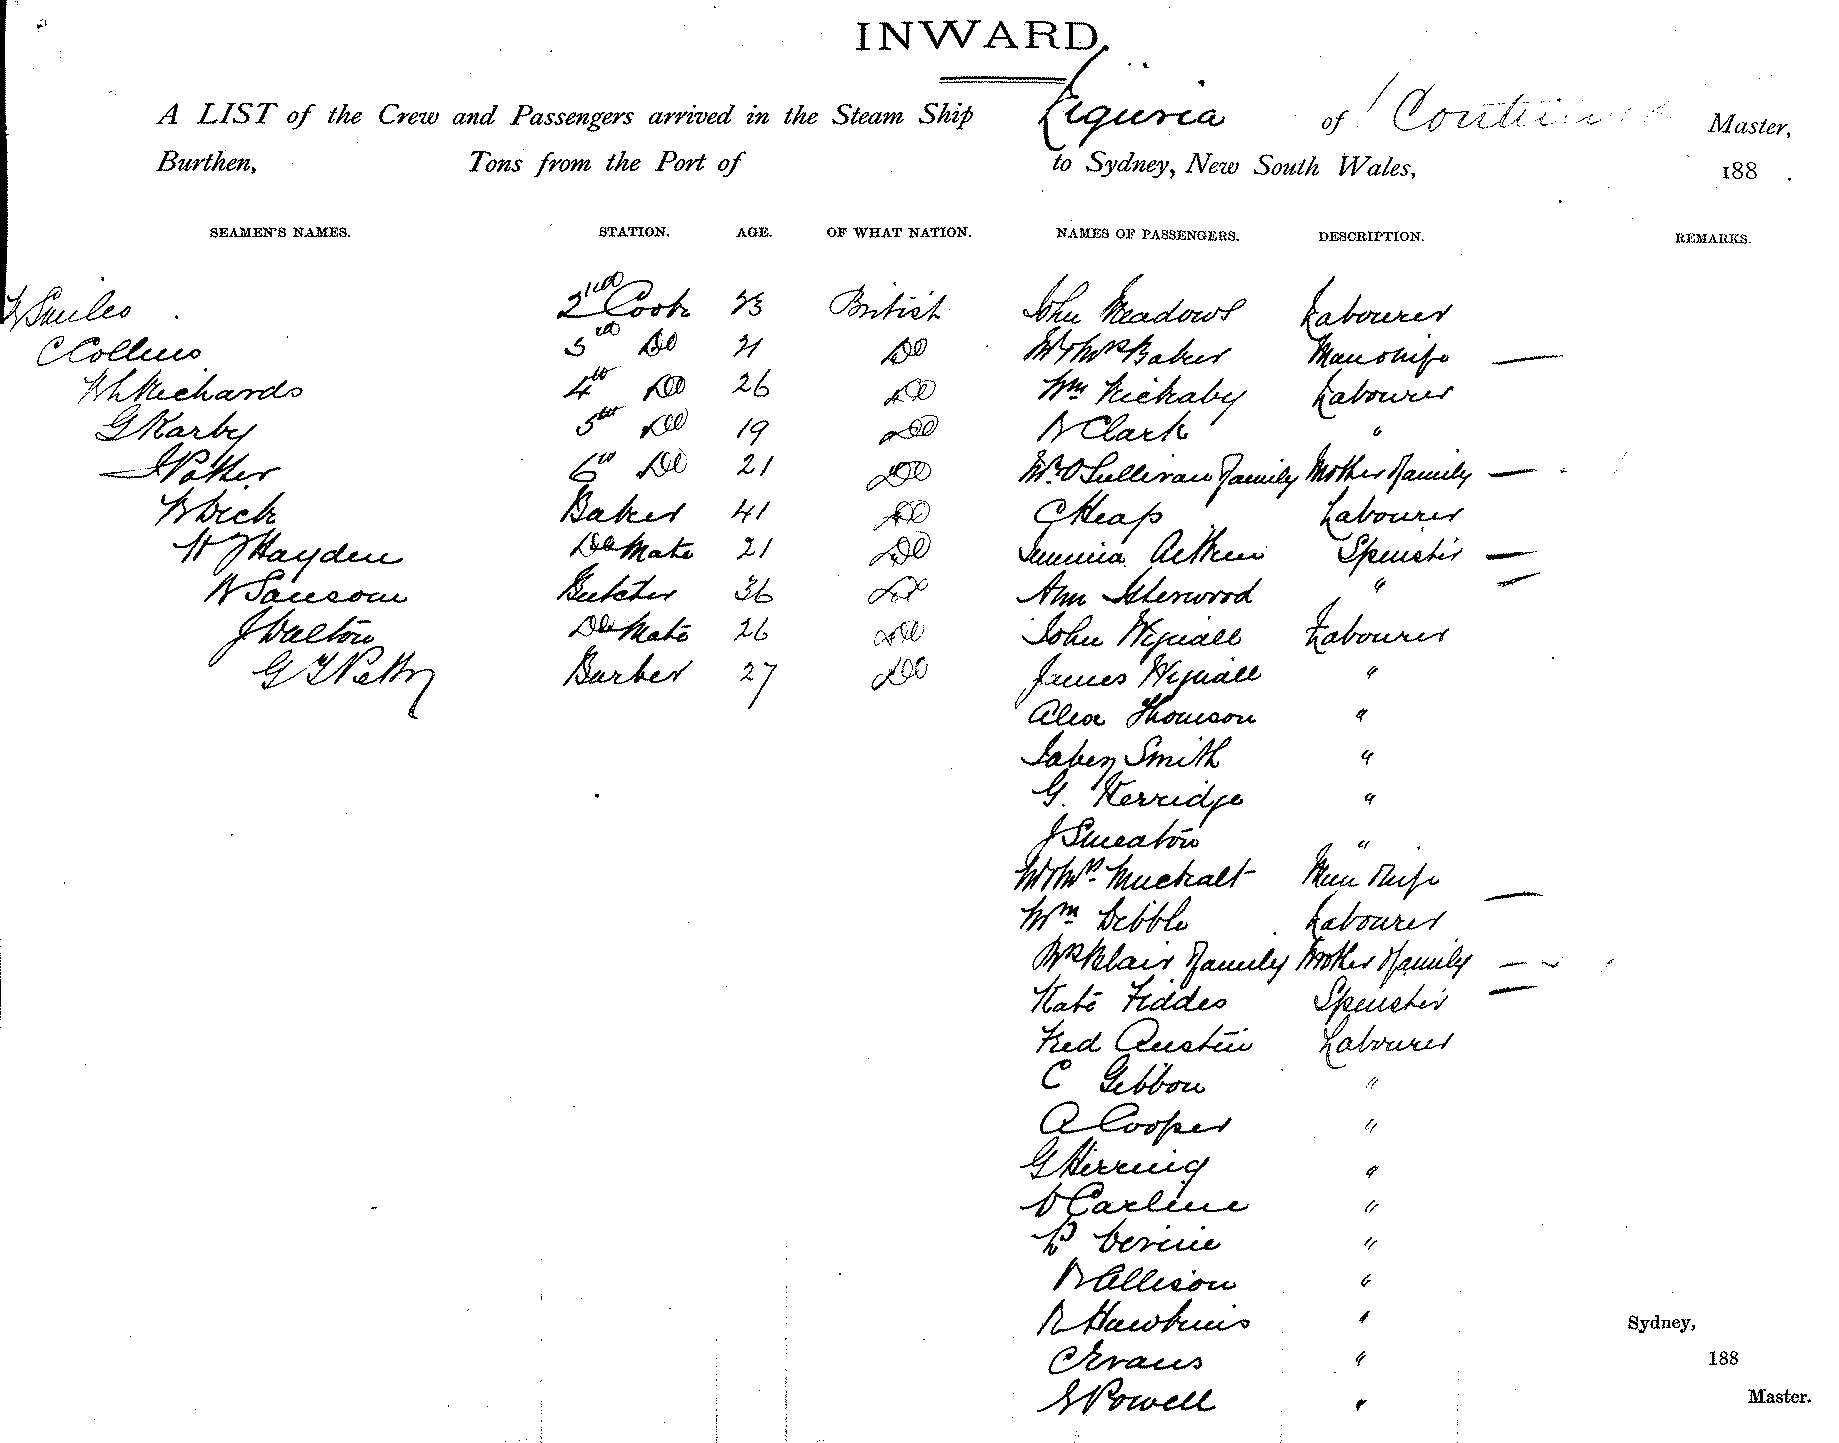 INWARD.
A LIST of the Crew and Passengers arrived in the Steam Ship Liguria of Continued Master,
Burthen, Tons from the Port of to Sydney, New South Wales, 188
SEAMEN'S NAMES. STATION. AGE. OF WHAT NATION. NAMES OF PASSENGERS. DESCRIPTION. REMARKS.
Smiles 2nd Cook 23 British John Meadows Labourer
C Collins 3rd Do 21 Do Mr & Mrs Baker Man & Wife —
W L Richards 4th Do 26 Do Wm Rickaby Labourer
G Karby 5th Do 19 Do R Clark "
J Potter 6th Do 21 Do Mrs O'Sullivan & family Mother & family —
R Dick Baker 41 Do C Heap Labourer
W J Hayden Do Mate 21 Do Jemima Aitken Spinster —
W Sansom Butcher 36 Do Ann Isherwood " —
J Dalton Do Mate 26 Do John Wyniall Labourer
G T Barber 27 Do James Wyniall "
Alex Thomson "
Jabez Smith "
G. Kerridge "
J Smeaton "
Mr & Mrs Muckalt Man & Wife —
Wm Dibble Labourer
Mrs Blair & family Mother & family —
Kate Fiddes Spinster —
Fred Austin Labourer
C Gibbon "
A Cooper "
G Herring "
D Carline "
"
R Allison "
R Hawkins "
C Evans "
Powell "
Sydney,
188
Master.